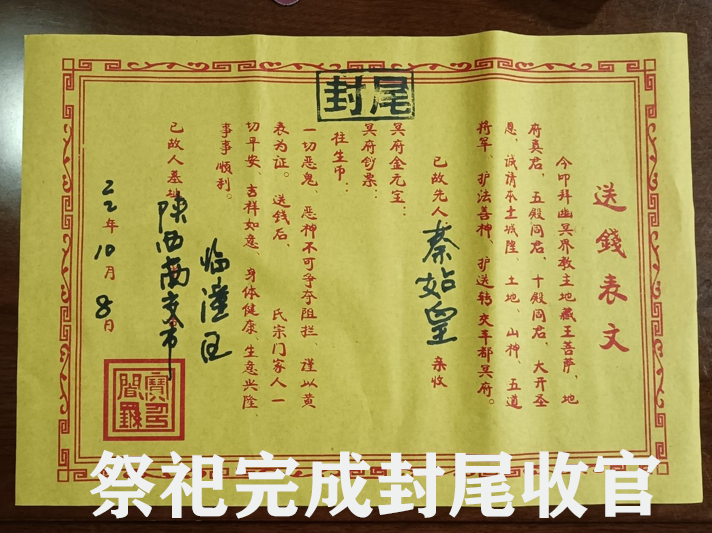 封尾
送錢表文
今叩拜幽冥界教主地藏王菩萨，地
府真君，五殿阎君，十殿阎君，大开圣
恩，诚请本土城隍，土地、山神、五道
将军、护法善神、护送转交丰都冥府。
已故先人秦始皇亲收
冥府金元宝：
冥府钞票：
往生币：
一切恶鬼、恶神不可争夺阻拦、谨以黄
表为证。送钱后，氏宗门家人一
切平安、吉祥如意、身体健康、生意兴隆、
事事顺利。
已故人墓地
陕西
临潼区
22年10月8日
祭祀完成封尾收官